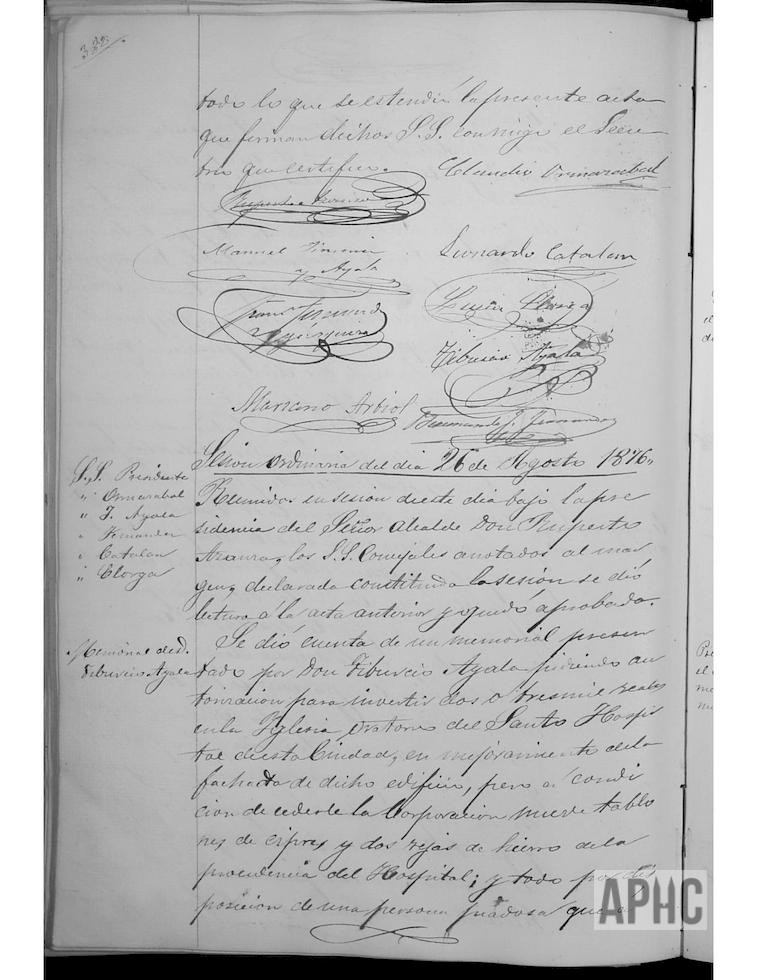 todo lo que se estendió la presente acta
que firman dichos S.S. conmigo el Secre
trio que certifico.
Claudio Ormazabal
Manuel
y Ayala
Leonardo Catalan
Tiburcio Ayala
Mariano Arbiol
Sesion Ordinaria del dia 26 de Agosto 1876,,
S.S. Presidente
" Ormazabal
" T. Ayala
" Fernandez
" Catalan
" Clorga
Reunidos en sesion de este dia bajo la pre
sidencia del Señor Alcalde Don Ruperto
los S.S. Concejales anotados al mar
gen, declarada constituida la sesion se dió
lectura á la acta anterior y quedó aprobada.
Memorial de D.
Tiburcio Ayala
Se dió cuenta de un memorial presen
tado por Don Tiburcio Ayala pidiendo au
torizacion para invertir dos o tres mil reales
en la Iglesia oratorio del Santo Hospi
tal de esta Ciudad, en mejoramiento de la
fachada de dicho edificio, pero á condi
cion de cederle la Corporacion nueve tablo
nes de cipres y dos rejas de hierro de la
procedencia del Hospital; y todo por dis
posicion de una persona piadosa que
APHC